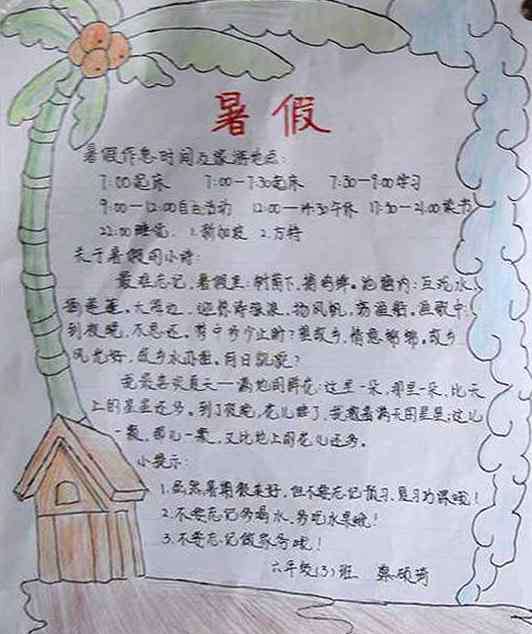 暑假
暑假作息时间及旅游地点:
7:00起床 7:00—7:30起床 7:30—9:00学习
9:00—12:00自主活动 12:00—午休 21:00读书
22:00睡觉. 1.新加坡 2.方特
关于暑假的小诗:
最难忘记,暑假里:树荫下,捕鸣蝉。池塘内:互戏水
大海边,迎惊涛骇浪,扬风帆,荡渔船。
到夜晚,不思还。梦中步今止时?里故乡,情意绵绵。故乡
风光好,故乡水,何日
我最喜欢夏天—满地的鲜花:这里一朵,那里一朵,比天
上的星星还多。到了夜晚,花儿睡了,我数着满天的星星:这儿
一颗,那儿一颗,又比地上的花儿还多。
小提示:
1.虽然暑期很美好,但不要忘记预习、复习功课哦!
2.不要忘记多喝水、多吃水果哦!
3.不要忘记做家务哦!
六年级(3)班 硕琦